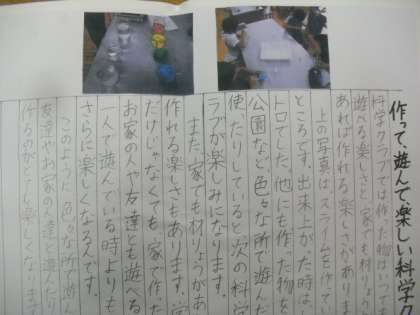 作って、遊んで、楽しい科学ク
科学クラブでは作った物はいつでも
遊べる楽しさと家でも材りょうが
あれば作れる楽しさがありま
上の写真は、スライムを作って
ところです。出来上がった時は、
トロでした。他にも作った物を
公園など色々な所で遊んだ
使ったりしていると次の科学
ラブが楽しみになります。
また、家でも材りょうがあ
作れる楽しさもあります。学
だけじゃなくても家で作った
お家の人や友達とも遊べる
一人で遊んでいる時よりも
さらに楽しくなるんです。
このように色々な所で遊ん
友達やお家の人達と遊んだり
作るのがとても楽しくなります